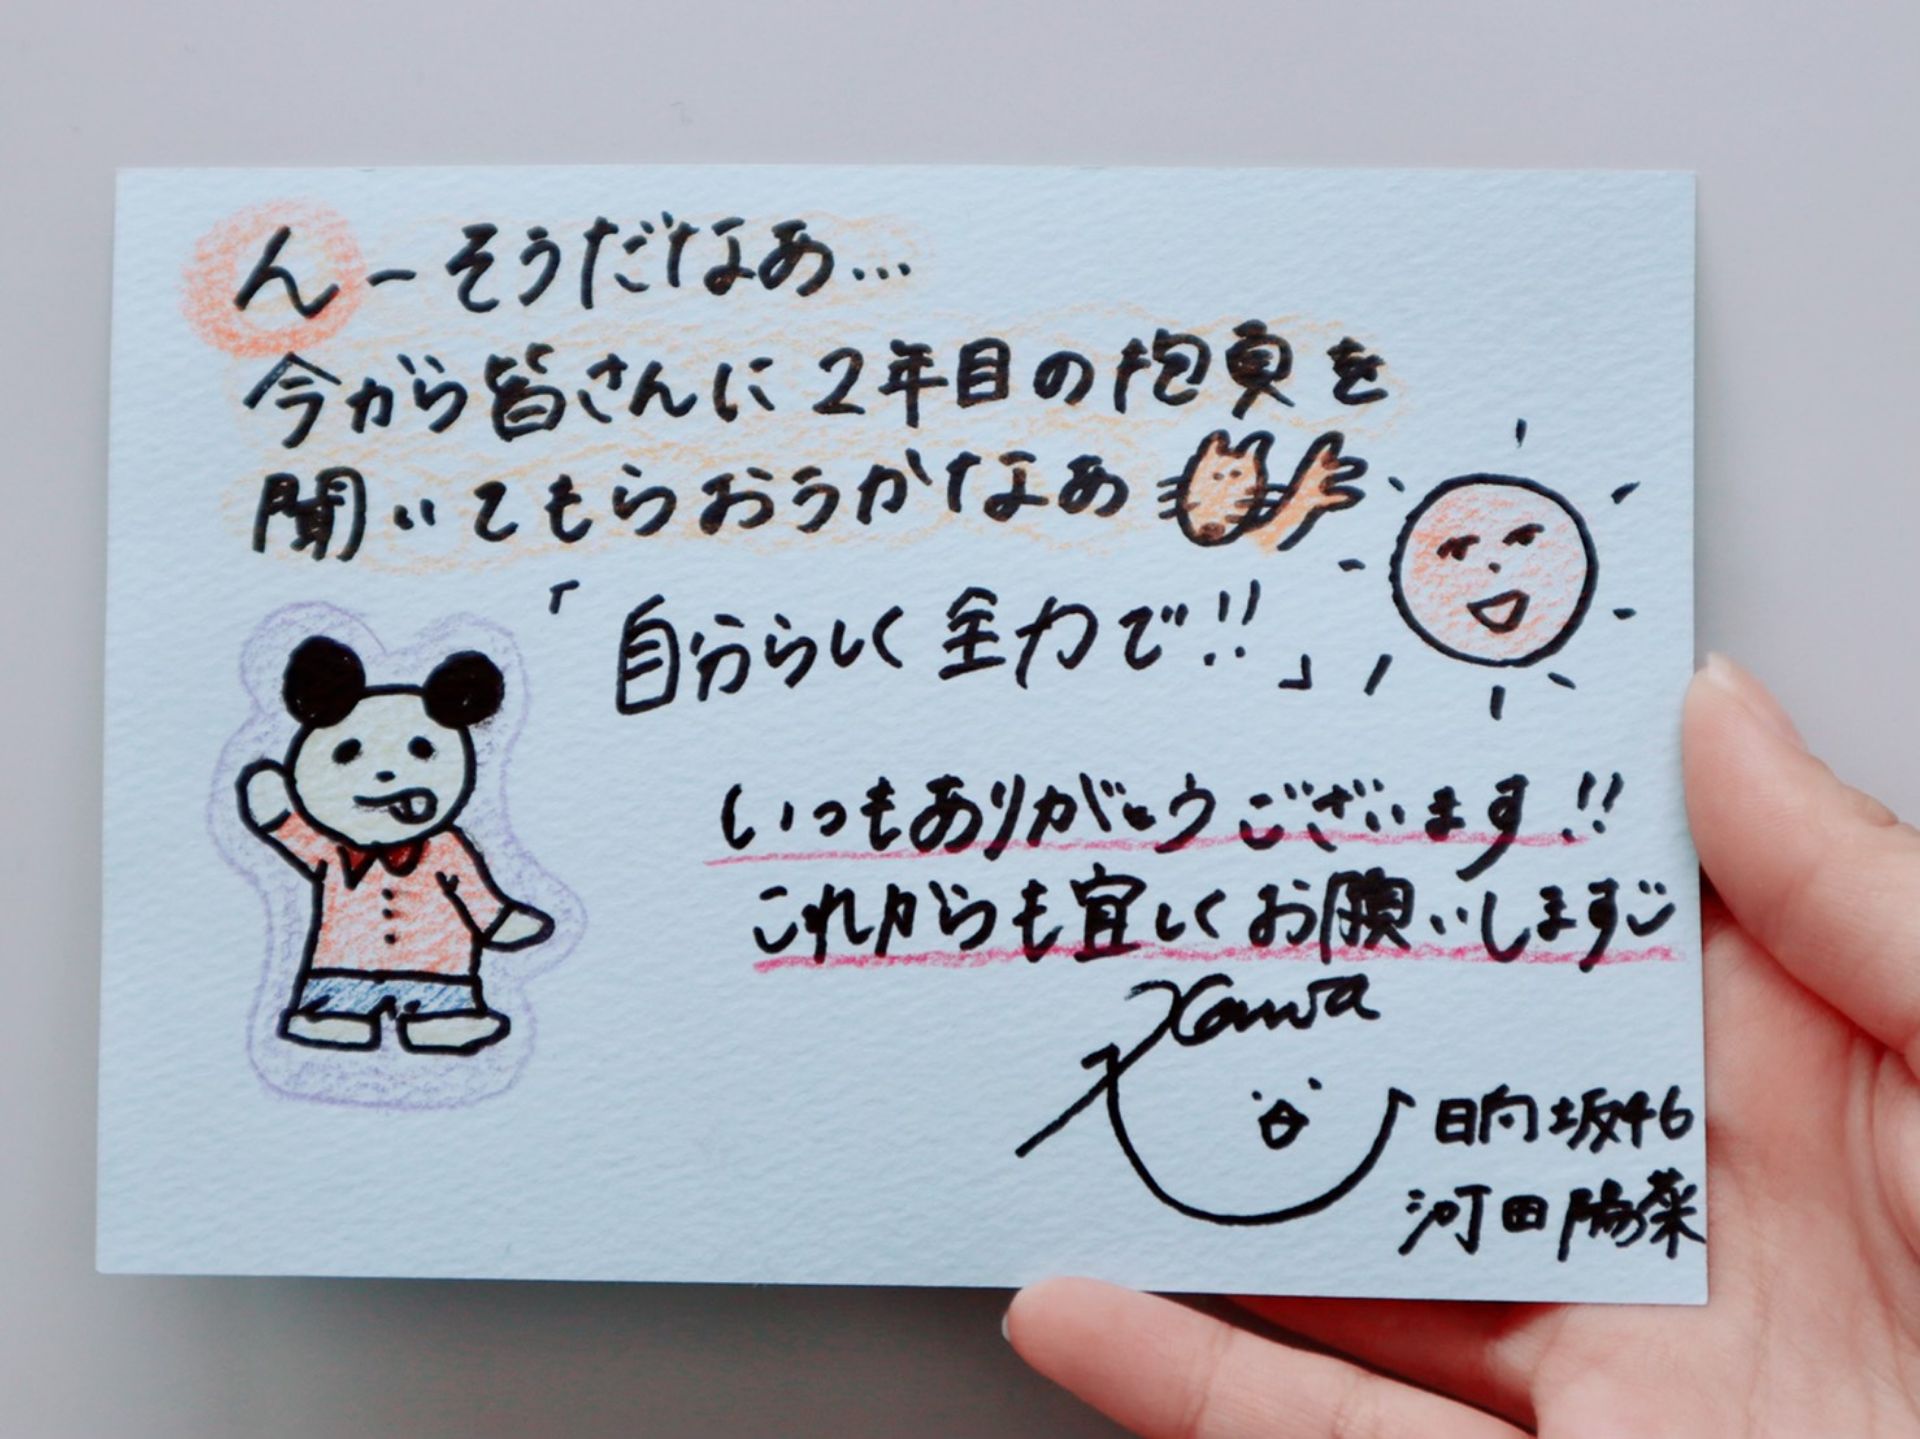 んーそうだなあ…
今から皆さんに2年目の抱負を
聞いてもらおうかなあ
「自分らしく全力で!!」
いつもありがとうございます!!
これからも宜しくお願いします
Kawa
日向坂46
河田陽菜